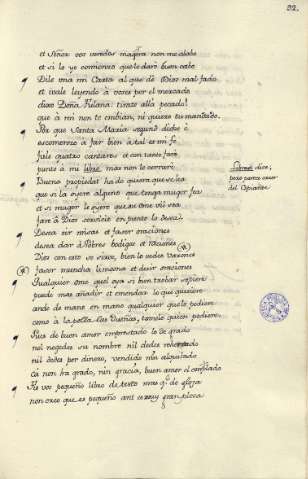 32.
et Señor vos veredes maguera non me alabo
et si lo yo comienzo que le daré buen cabo
Dile una mi Carta al que de Dios mal fado
et ívale leyendo á voces por el mercado
dixo Doña Fulana: tirate allá pecado!
que á mi non te embian, ni quiero tu mandado.
Por que Santa Maria segund dicho é
es comienzo á far bien á tal es mi fe
fule quatro cantares et con tanto faré
punto á mi libre, mas non lo cerraré.
Buena propiedad ha do quiera que se lea
que si lo oyere alguno que tenga muger fea
et si muger lo oyere que su ome vil sea
faré á Dios servicio en punto lo desea.
Desea oir misas et faser oraciones
desea dar á Pobres bodigos et raciones
Dios con esto se sirve, bien lo vedes Varones
faser muncha limosna et desir oraciones
Qualquier ome quel oya si bien trobar sopiere
puede mas añadir et emendar lo que quisiere
ande de mano en mano qualquier que le pediere
como á la pella las Dueñas, tomelo quien podiere
Pues de buen amor emprestado lo de grado
nil negedes su nombre nil dedes refertado
nil deda por dinero, vendido nin alquilado
cá non ha grado, nin gracia, buen amor el complado
Fis vos pequeño libro de testo mas q.e de glosa
non creo que es pequeño ant es muy gran prosa
dice,
pero parece error
del Copiante.